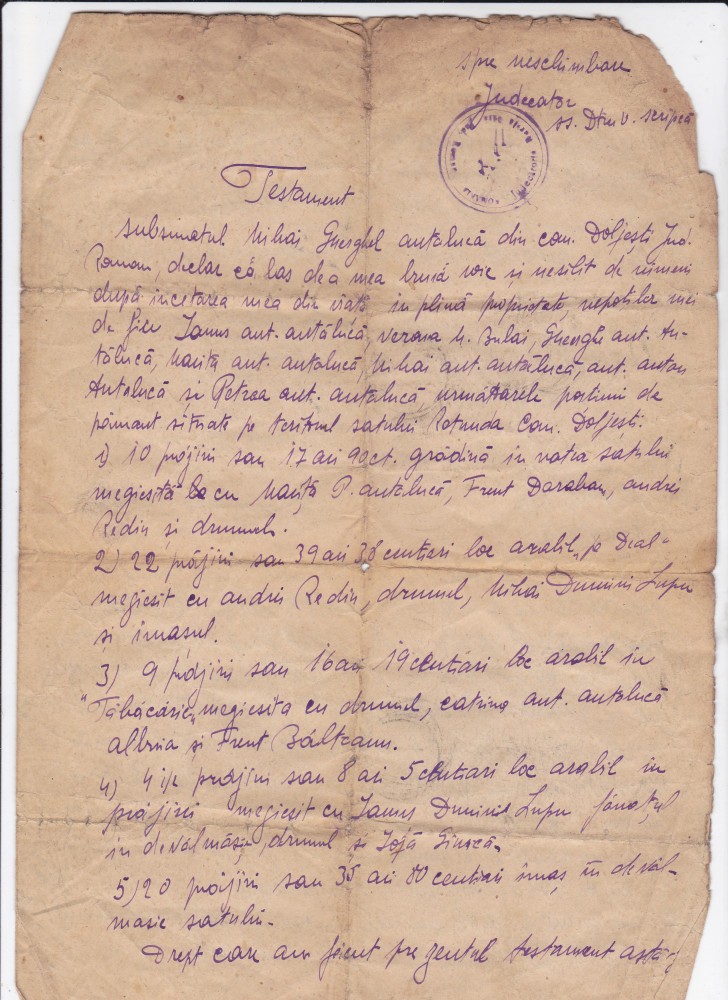 spre neschimbare
Judecator
ss. Dtru V.
Testament
subsemnatul Mihai Gherghel antălucă din com. Doljești Jud.
Roman, declar că las de a mea bună voie și nesilit de nimeni
după incetarea mea din viață in plină proprietate, nepotilor mei
de fiu Ianus ant. antălucă, Verona M. Bulai, Gheorghe ant. An-
tălucă, Marița ant. antalucă, Mihai ant. antălucă, ant. anton
Antalucă și Petrea ant. antalucă următoarele portiuni de
pămant situate pe teritoriul satului Rotunda Com. Doljești.
1) 10 prăjini sau 17 ari 90 ct. grădină in vatra satului
megiesită cu Marița P. antalucă, Frent Daraban, andrei
Redin și drumul.
2) 22 prăjini sau 39 ari 38 centiari loc arabil „pe Deal"
megiesit cu andrei Redin, drumul, Mihai Duminic Lupu
și imasul.
3) 9 prăjini sau 16 ari 19 centiari loc arabil in
"Tăbăcăria" megiesita cu drumul, catrina ant. antalucă
albina și Frent Bălteanu.
4) 4 1/2 prăjini sau 8 ari 5 centiari loc arabil in
prăjini megiesit cu Ianus Duminic Lupu fânațul
in devălmășie, drumul și Iojă
5) 20 prăjini sau 35 ari 80 centiari imaș in devăl-
masie satului.
Drept care am făcut prezentul testament astă-